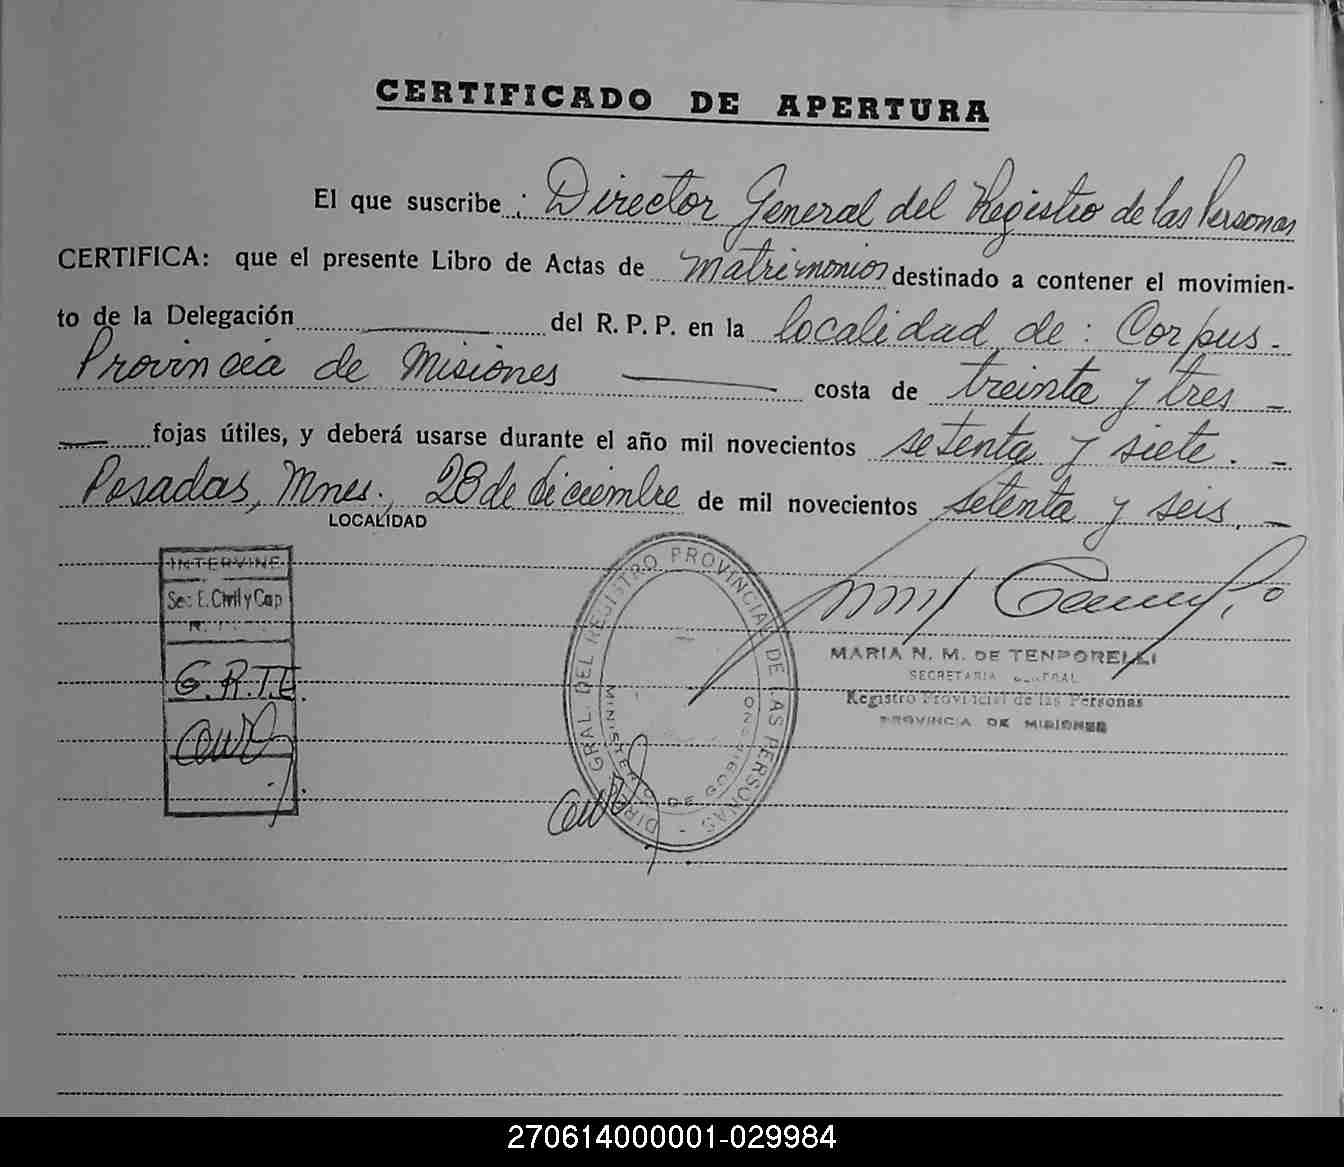 CERTIFICADO DE APERTURA
El que suscribe : Director General del Registro de las Personas
CERTIFICA: que el presente Libro de Actas de Matrimonios destinado a contener el movimien-
to de la Delegación del R. P. P. en la localidad de : Corpus.
Provincia de Misiones costa de treinta y tres
fojas útiles, y deberá usarse durante el año mil novecientos setenta y siete.
Posadas, Mnes., 28 de diciembre de mil novecientos setenta y seis.
LOCALIDAD
INTERVINE
Sec E. Civil y Cap
G.R.T.E.
DIR. GRAL. DEL REGISTRO PROVINCIAL DE LAS PERSONAS -
MINISTERIO DE GOBIERNO
MARIA N. M. DE TENPORELLI
SECRETARIA GENERAL
Registro Provincial de las Personas
PROVINCIA DE MISIONES
270614000001-029984